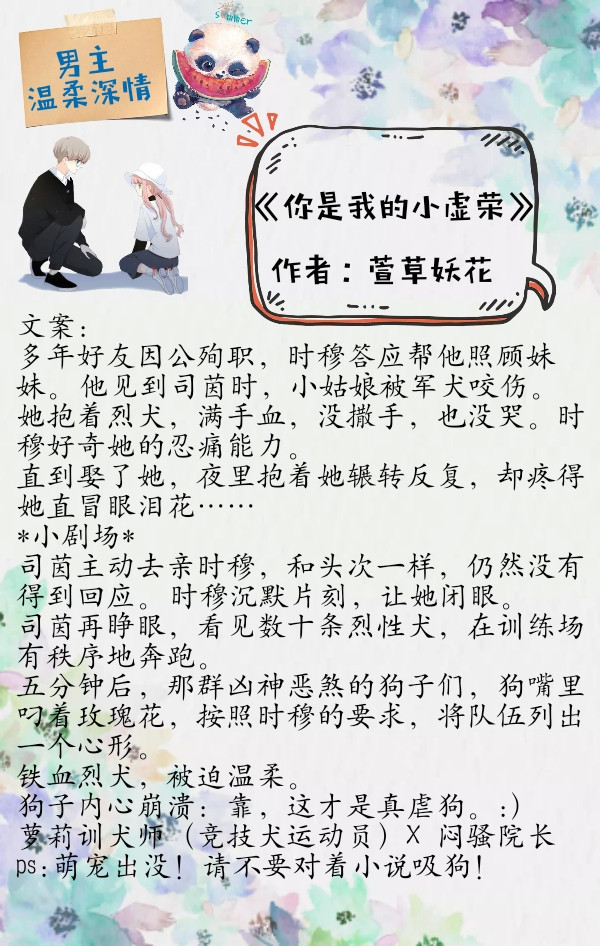 summer
男主
温柔深情
《你是我的小虚荣》
作者：萱草妖花
文案：
多年好友因公殉职，时穆答应帮他照顾妹
妹。他见到司茵时，小姑娘被军犬咬伤。
她抱着烈犬，满手血，没撒手，也没哭。时
穆好奇她的忍痛能力。
直到娶了她，夜里抱着她辗转反复，却疼得
她直冒眼泪花……
*小剧场*
司茵主动去亲时穆，和头次一样，仍然没有
得到回应。时穆沉默片刻，让她闭眼。
司茵再睁眼，看见数十条烈性犬，在训练场
有秩序地奔跑。
五分钟后，那群凶神恶煞的狗子们，狗嘴里
叼着玫瑰花，按照时穆的要求，将队伍列出
一个心形。
铁血烈犬，被迫温柔。
狗子内心崩溃：靠，这才是真虐狗。:)
萝莉训犬师（竞技犬运动员）X 闷骚院长
ps:萌宠出没！请不要对着小说吸狗！